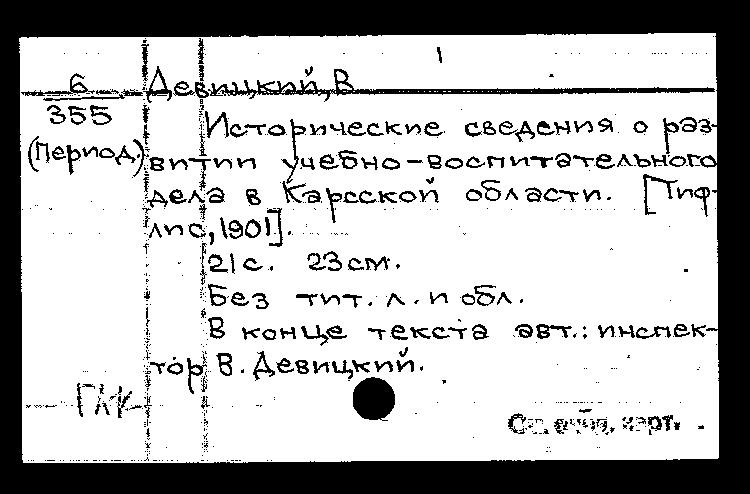 6
355
(Период.)
Девицкий, В
Исторические сведения о раз-
витии учебно-воспитательного
дела в Карсской области. [Тиф-
лис, 1901].
21 с. 23 см.
Без тит. л. и обл.
В конце текста авт.: инспек-
тор В. Девицкий.
См. карт.